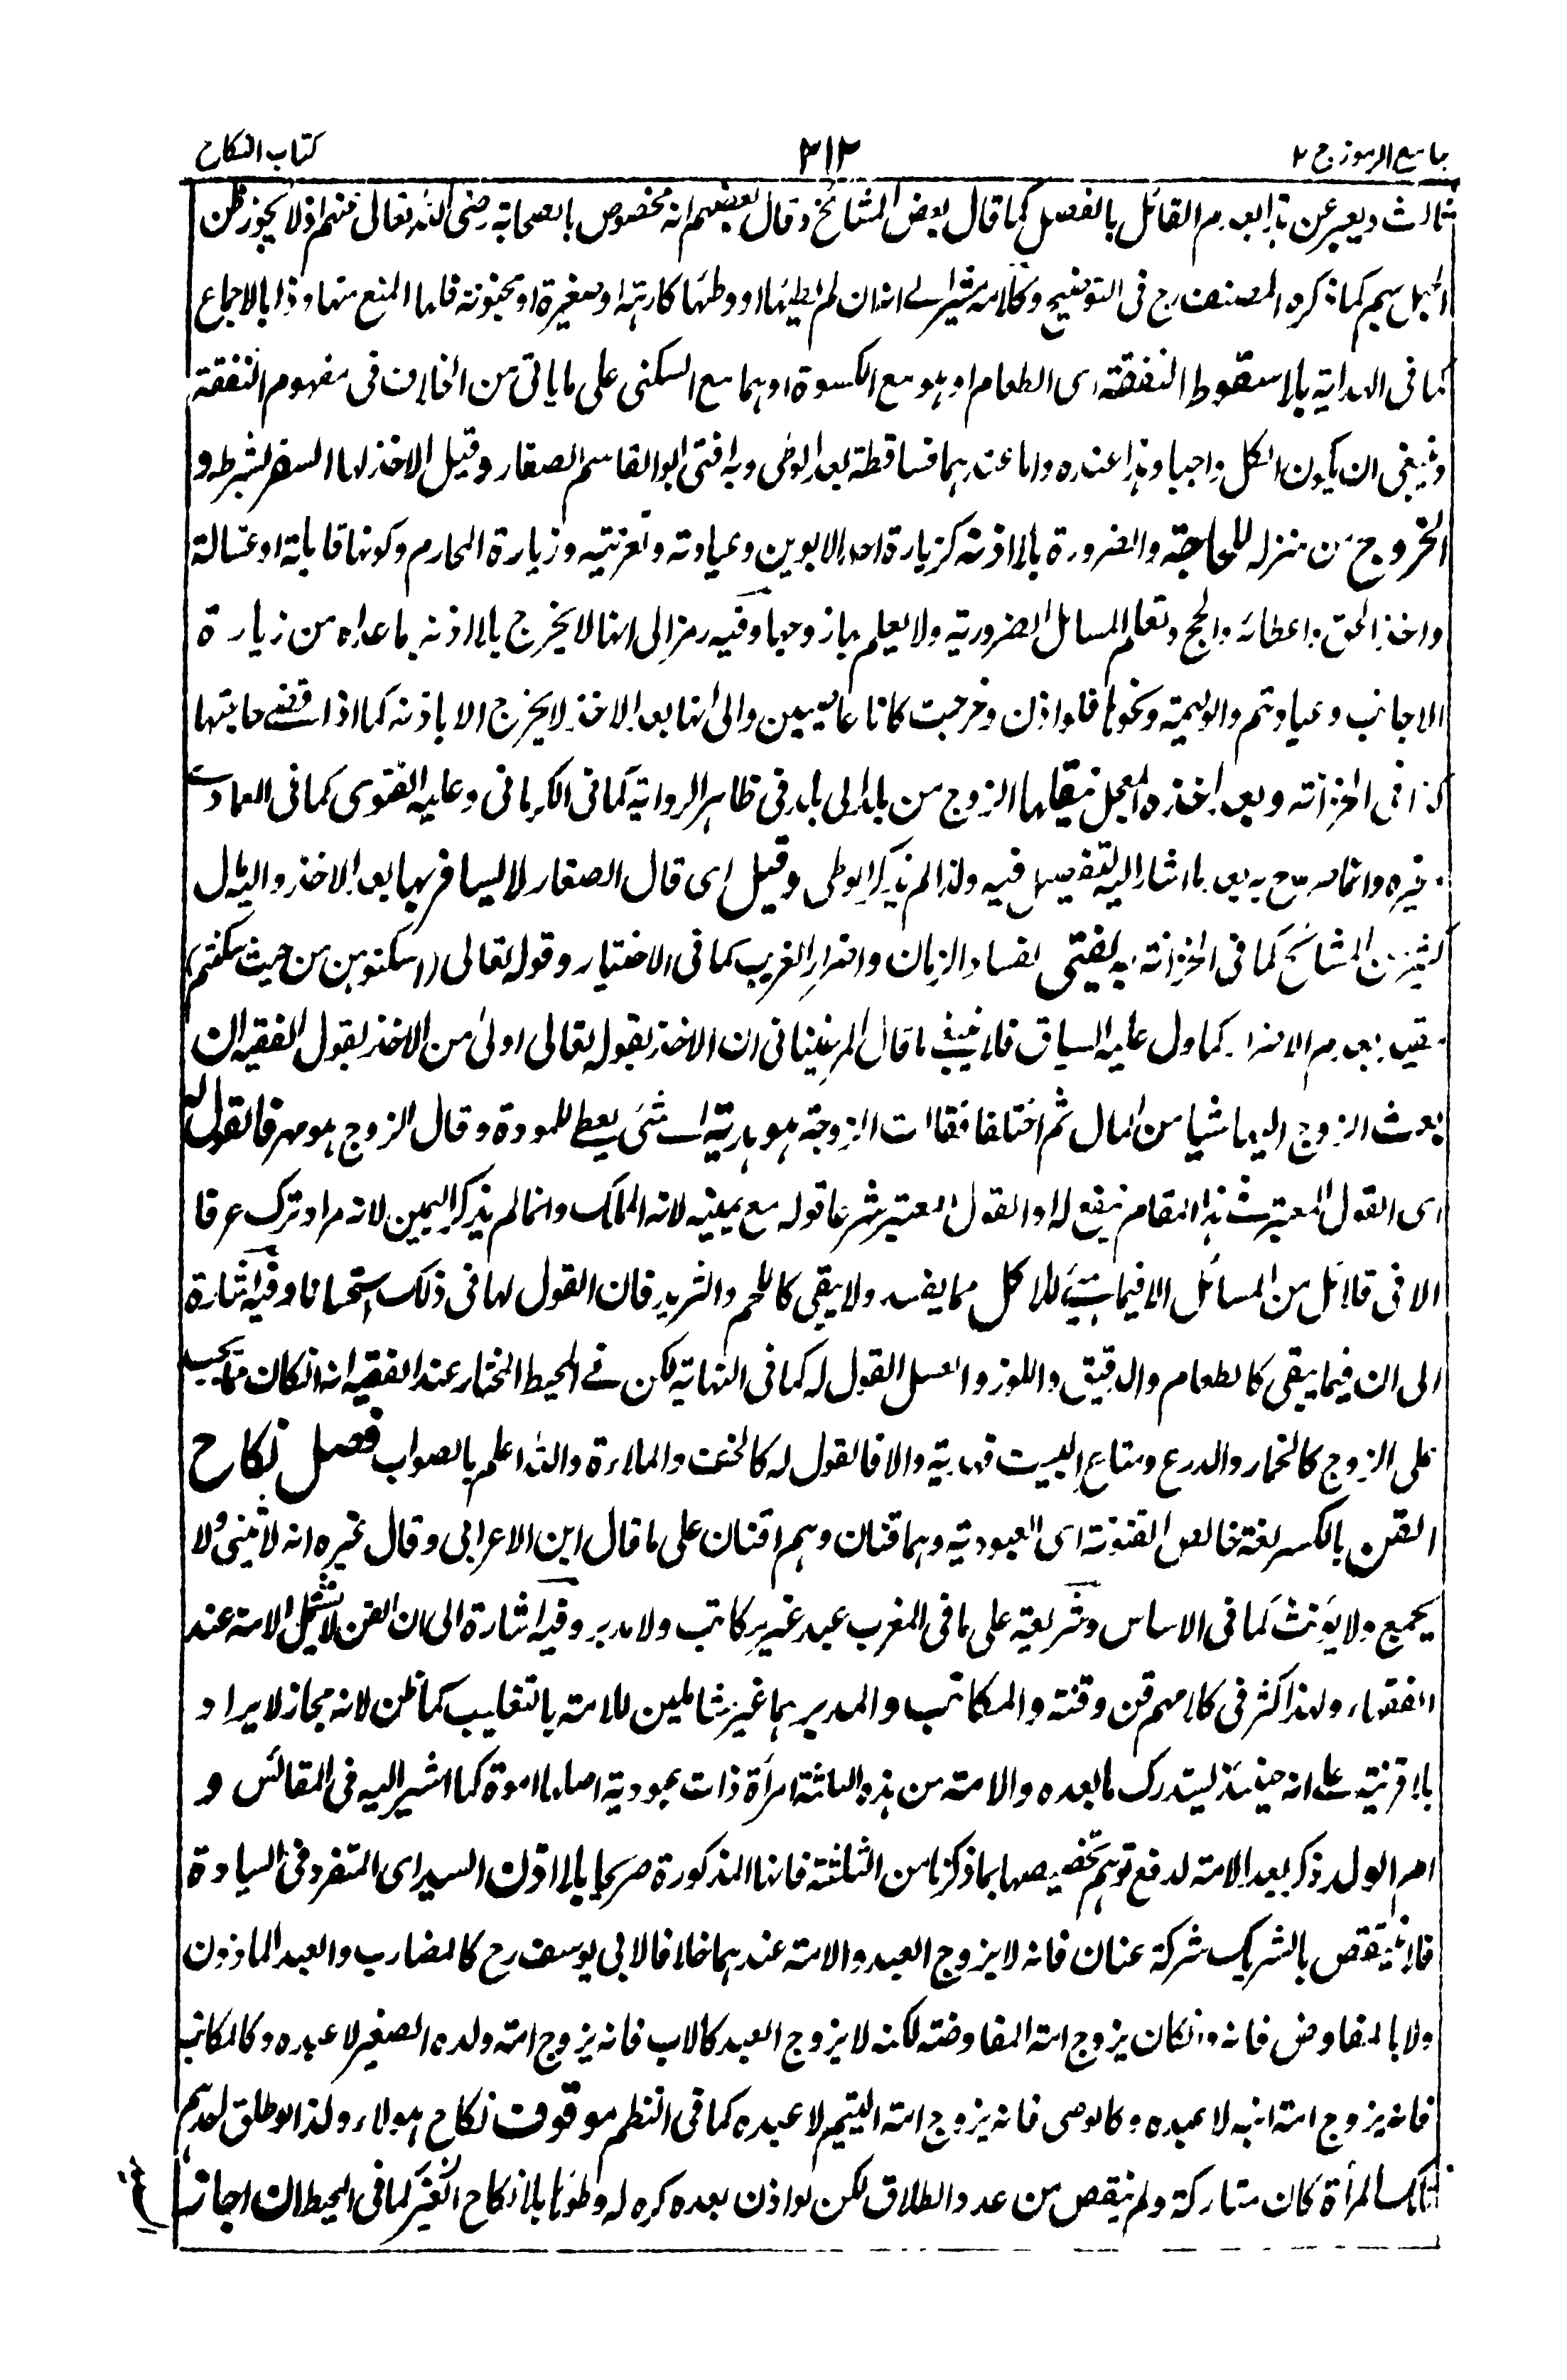 جامع الرموز ج ٢
٣١٢
كتاب النكاح
ثالث ويعبر عن هذا بعدم القائل بالفصل كما قال بعض المشائخ وقال بعضهم انه مخصوص بالصحابة رضى الله تعالى عنهم اذ لا يجوز ظن
الجهل بهم كما ذكره المصنف رح فى التوضيح وكلامه مشير الى انه ان لم يطيها او وطئها كارهة او صغيرة او مجنونة فلها المنع منها وذا بالاجماع
كما فى الهداية بلا سقوط النفقة اى الطعام او هو مع الكسوة او هما مع السكنى على ما ياتى من الخلاف فى مفهوم النفقة
وينبغى ان يكون الكل واجبا وهذا عنده واما عندهما فساقطة بعد الوطى وبه افتى ابو القاسم الصفار وقبل الاخذ لها السفر بشرطه و
الخروج من منزله للحاجة والضرورة بلا اذنه كزيارة احد الابوين وعيادته وتعزيته وزيارة المحارم وكونها قابلة او غسالة
واخذ الحق واعطائه والحج وتعلم المسائل الضرورية ولا يعلم بها زوجها وفيه رمز الى انها لا يخرج بلا اذنه بما عداه من زيارة
الاجانب وعيادتهم والوليمة ونحوها فلو اذن وخرجت كانا عاصيين والى انها بعد الاخذ لا يخرج الا باذنه كما اذا قضى حاجتها
كذا فى الخزانة وبعد اخذه المعجل ينقلها الزوج من بلد الى بلد فى ظاهر الرواية كما فى الكرمانى وعليه الفتوى كما فى العمادى
وغيره وانما صرح به بعد ما اشار اليه لتفصيل فيه ولذا لم يذكر الوطى وقيل اى قال الصفار لا يسافر بها بعد الاخذ واليه مال
كثير من المشائخ كما فى الخزانة به يفتى لفساد الزمان واضرار الغريب كما فى الاختيار وقوله تعالى (اسكنوهن من حيث سكنتم)
مقيد بعدم الاضرار كما دل عليه السياق فلا ينبغى ما قال المرغينانى ان الاخذ بقوله تعالى اولى من الاخذ بقول الفقيه ان
بعث الزوج اليها شيا من المال ثم اختلفا فقالت الزوجة هو هدية اى شئ يعطى للمودة وقال الزوج هو مهر فالقول له
اى القول المعتبر فى هذا المقام ينفع له او القول المعتبر شرعا قوله مع يمينه لانه المملك وانما لم يذكر اليمين لانه مراد ترك عرفا
الا فى قلائل من المسائل الا فيما هيئ للاكل مما يفسد ولا يبقى كاللحم والثريد فان القول لها فى ذلك استحسانا وفيه اشارة
الى ان فيما يبقى كالطعام والدقيق واللوز والعسل القول له كما فى النهاية لكن فى المحيط المختار عند الفقيه انه ان كان مما يجب
على الزوج كالخمار والدرع ومتاع البيت فهدية والا فالقول له كالخف والملاءة والله اعلم بالصواب فصل نكاح
القن بالكسر لغة خالص القنونة اى العبودية وهما قنان وهم اقنان على ما قال ابن الاعرابى وقال غيره انه لا يثنى ولا
يجمع ولا يؤنث كما فى الاساس وشريعة على ما فى المغرب عبد غير كاتب ولا مدبر وفيه اشارة الى ان القن لا يشمل الامة عند
الفقهاء ولهذا كثر فى كلامهم قن وقنة والمكاتب والمدبر هما غير شاملين للامة بالتغليب كما ظن لانه مجاز لا يراد
بلا قرينة على انه حينئذ ليتدرك ما بعده والامة من هذه الثلثة امرأة ذات عبودية اصلها اموة كما اشير اليه فى المقائس و
ام الولد ذكر بعد الامة لدفع توهم تخصيصها بما ذكرنا من الثلثة فانها المذكورة صريحا بلا اذن السيد اى المتفرد فى السيادة
فلا ينتقض بالشريك شركة عنان فانه لا يزوج العبد والامة عندهما خلافا لابى يوسف رح كالمضارب والعبد الماذون
ولا بالمفاوض فانه وان كان يزوج امة المفاوضة لكنه لا يزوج العبد كالاب فانه يزوج امة ولده الصغير لا عبده وكالمكاتب
فانه يزوج امة ابنه لا عبده وكالوصى فانه يزوج امة اليتيم لا عبده كما فى النظم موقوف نكاح هولاء ولذا لو طلق احدهم
تلك المرأة كان متاركة ولم ينقص من عدد الطلاق لكن لو اذن بعده كره له وطؤها بلا نكاح كما فى المحيط ان اجاز